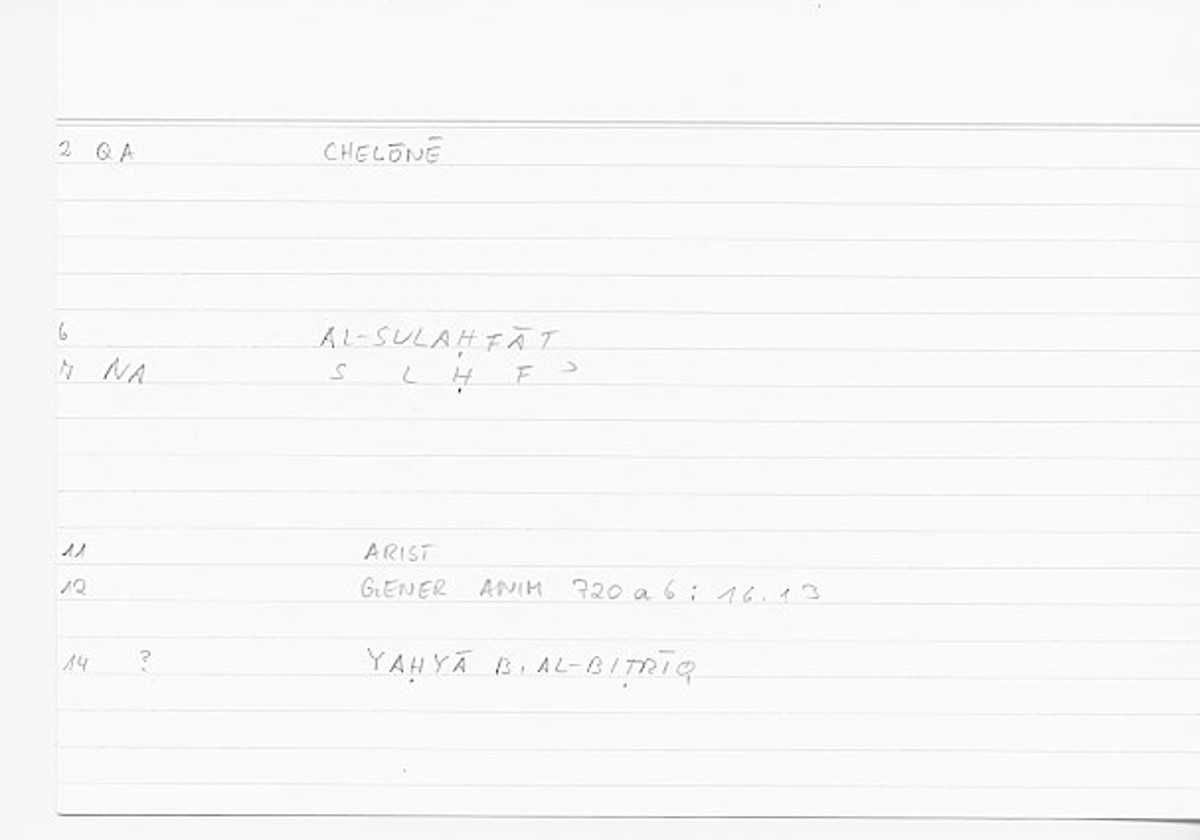 2 QA CHELŌNĒ
6 AL-SULAḤFĀT
7 NA S L Ḥ F ʾ
11 ARIST
12 GENER ANIM 720 a 6 : 16.13
14 ? YAḤYĀ B. AL-BIṬRĪQ